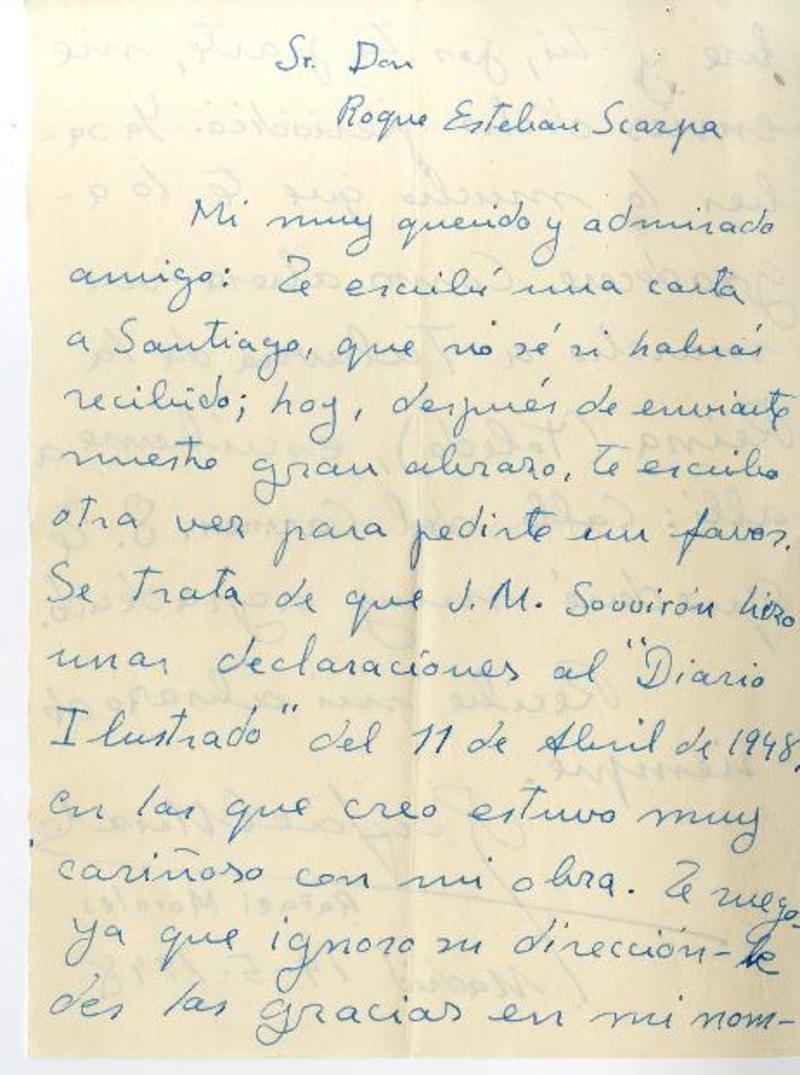 Sr. Don
Roque Esteban Scarpa
Mi muy querido y admirado
amigo: Te escribí una carta
a Santiago, que no sé si habrás
recibido; hoy, después de enviarte
nuestro gran abrazo, te escribo
otra vez para pedirte un favor.
Se trata de que J. M. Souvirón hizo
unas declaraciones al "Diario
Ilustrado" del 11 de Abril de 1948,
en las que creo estuvo muy
cariñoso con mi obra. Te ruego-
ya que ignoro su dirección-le
des las gracias en mi nom-